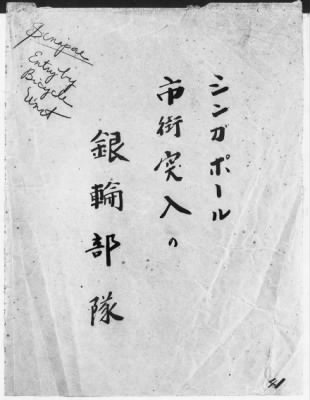 シンガポール
市街突入の
銀輪部隊
Entry by
Bicycle
Unit